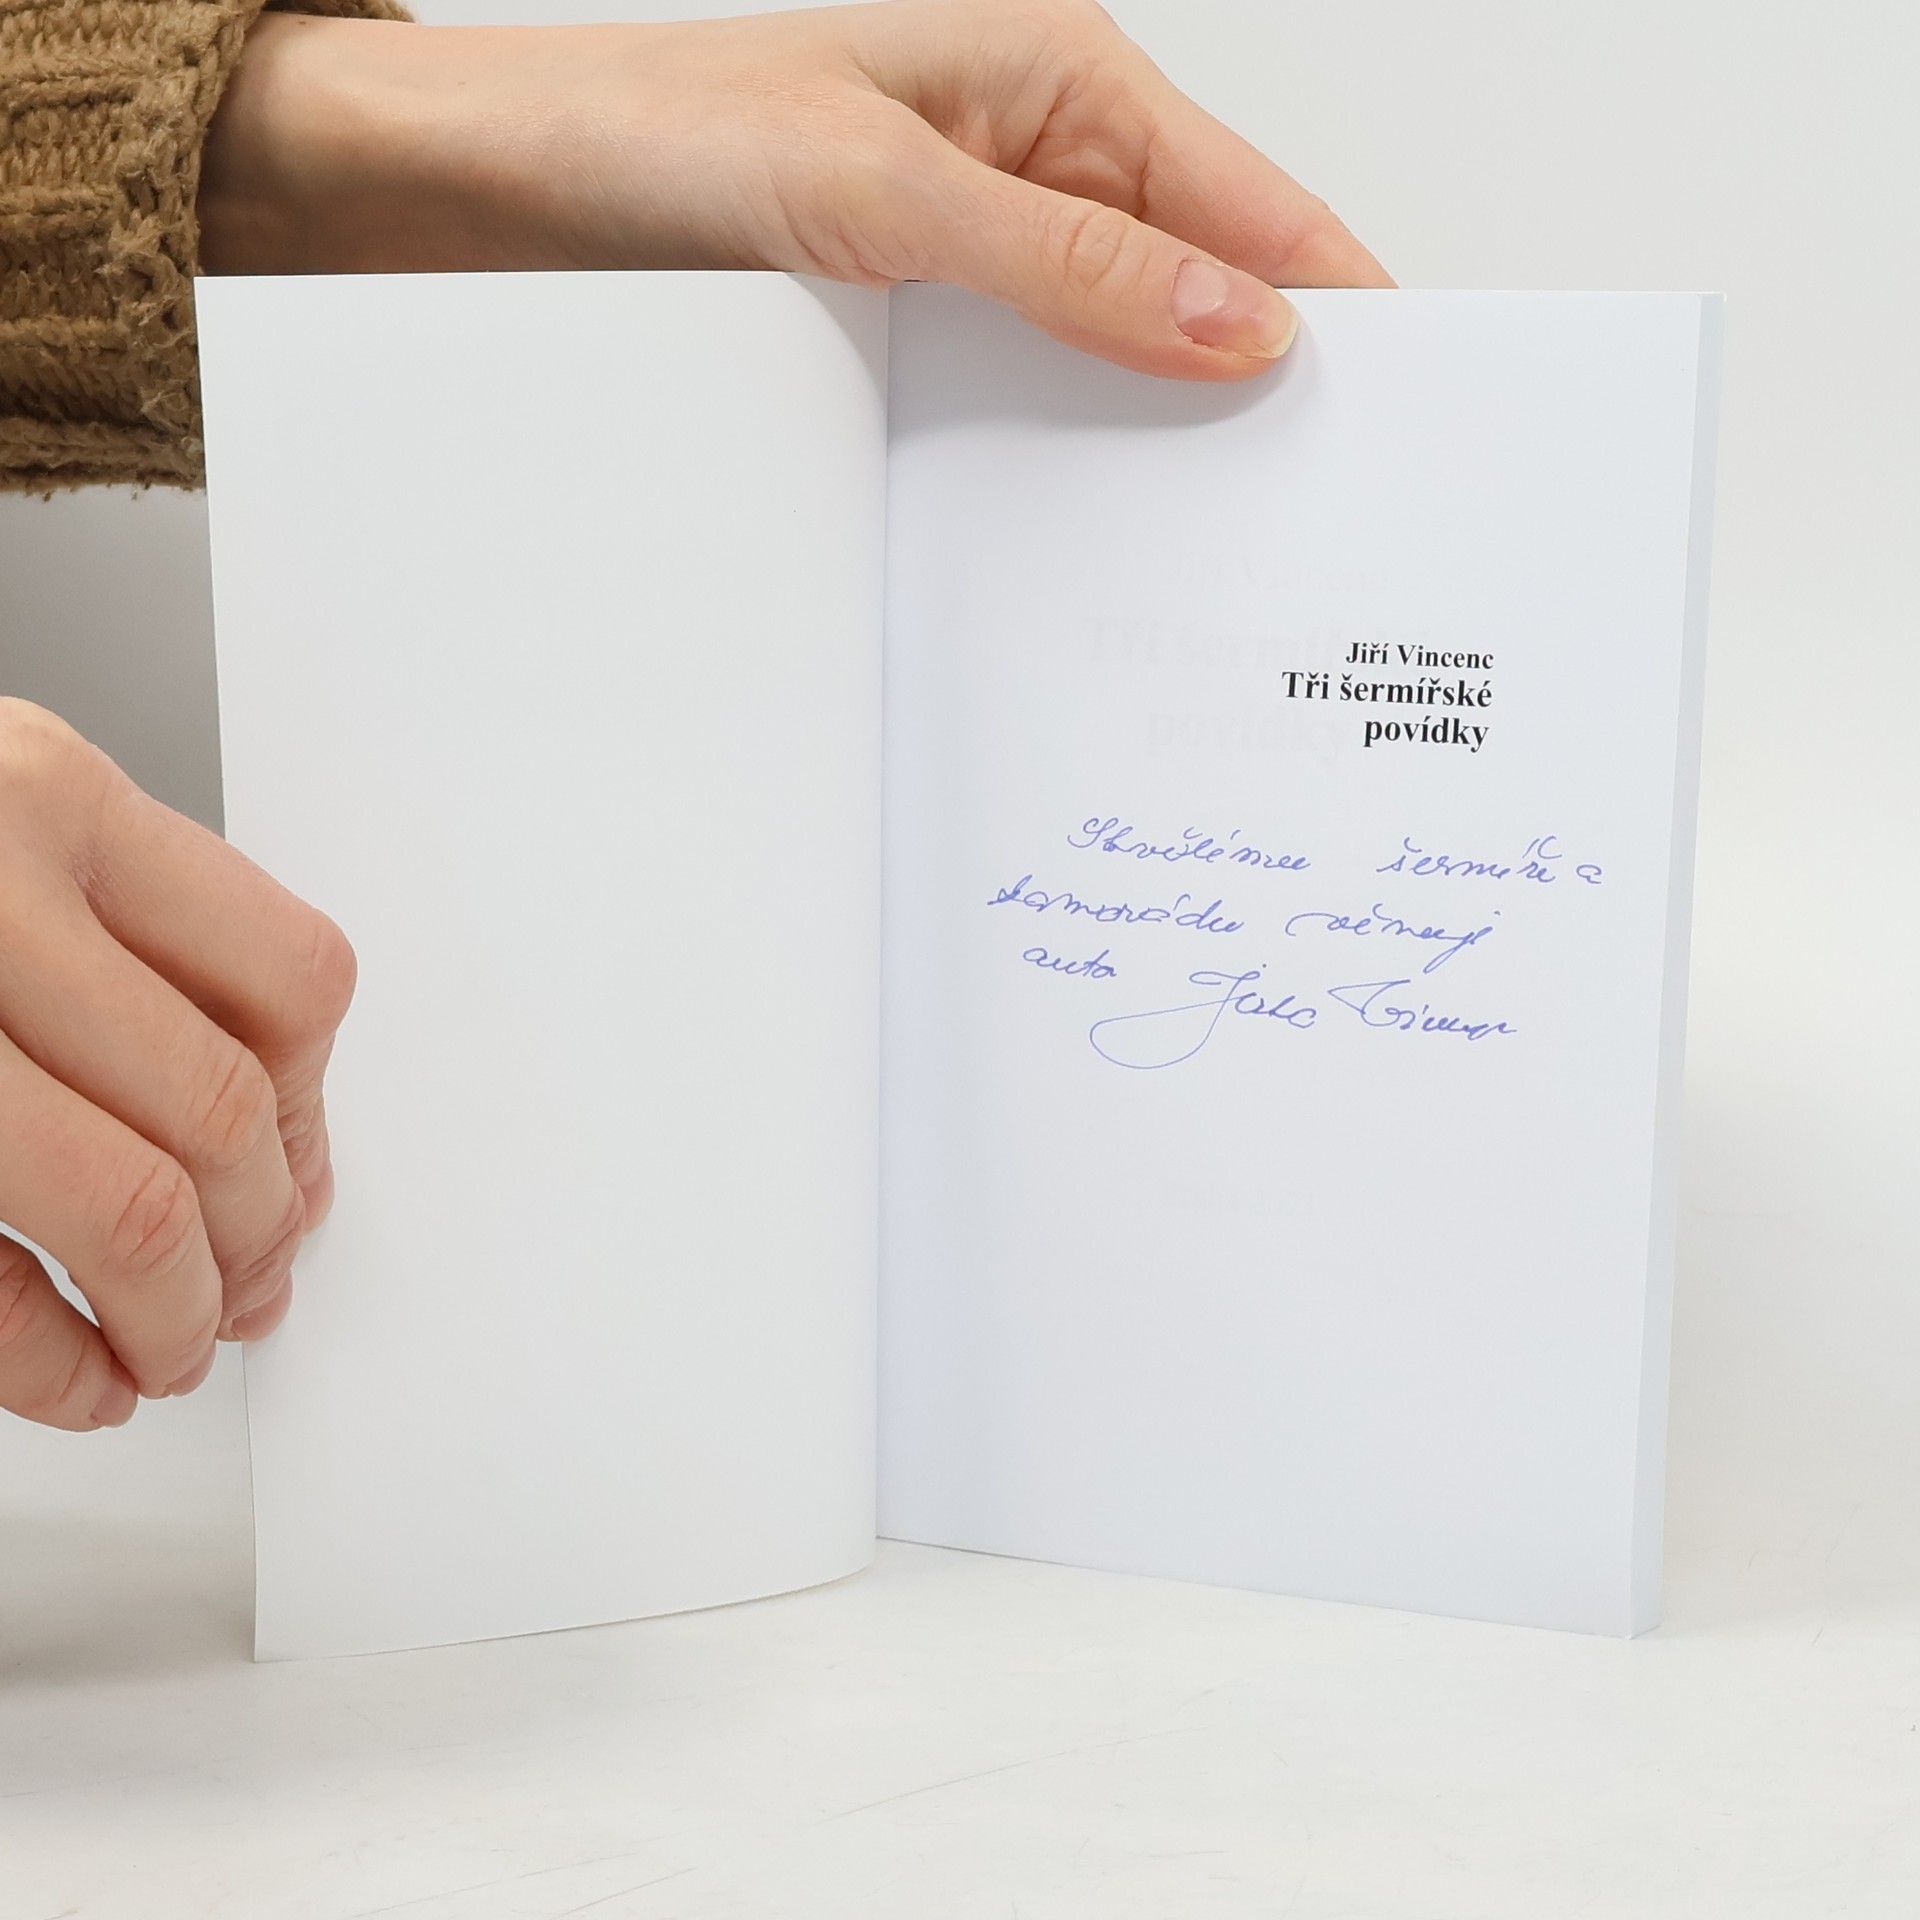 Jiří Vincenc
Tři šermířské
povídky
Skvělému šermíři a
kamarádu věnuje
autor Jirka Vincenc